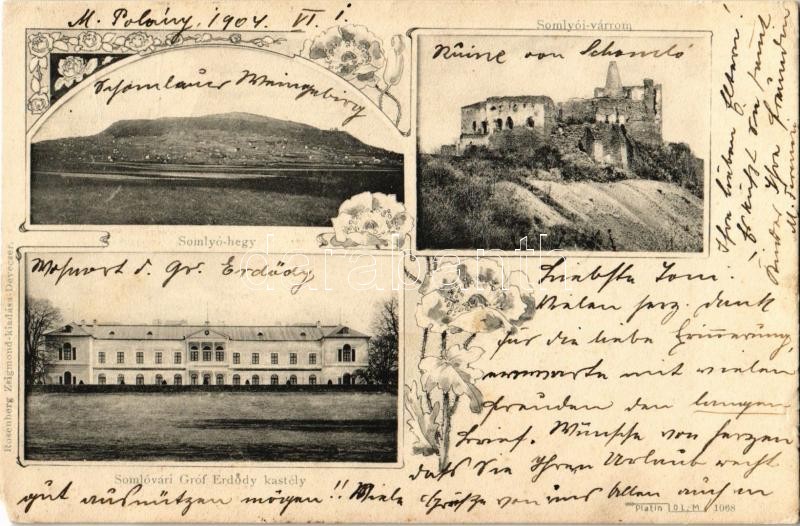 M. Polány, 1904. VI. 1.
Somlyói-várrom
Ruine von Schomló
Schomlauer Weingebirg
Somlyó-hegy
Wohnort d. Gr. Erdődy
Somlóvári Gróf Erdődy kastély
Rosenberg Zsigmond-kiadása-Devecser.
Liebste Toni.
Vielen herz. Dank
für die liebe Erinnerung,
erwarte mit vielen
Freuden den langen
Brief. Wünsche von Herzen
dass Sie Ihren Urlaub recht
gut ausnützen mögen!! Viele Grüsse von uns Allen auch an
Ihre lieben Eltern!
Es küsst Sie
Ihre Freundin
Platin D.L.M. 1068
darabanth